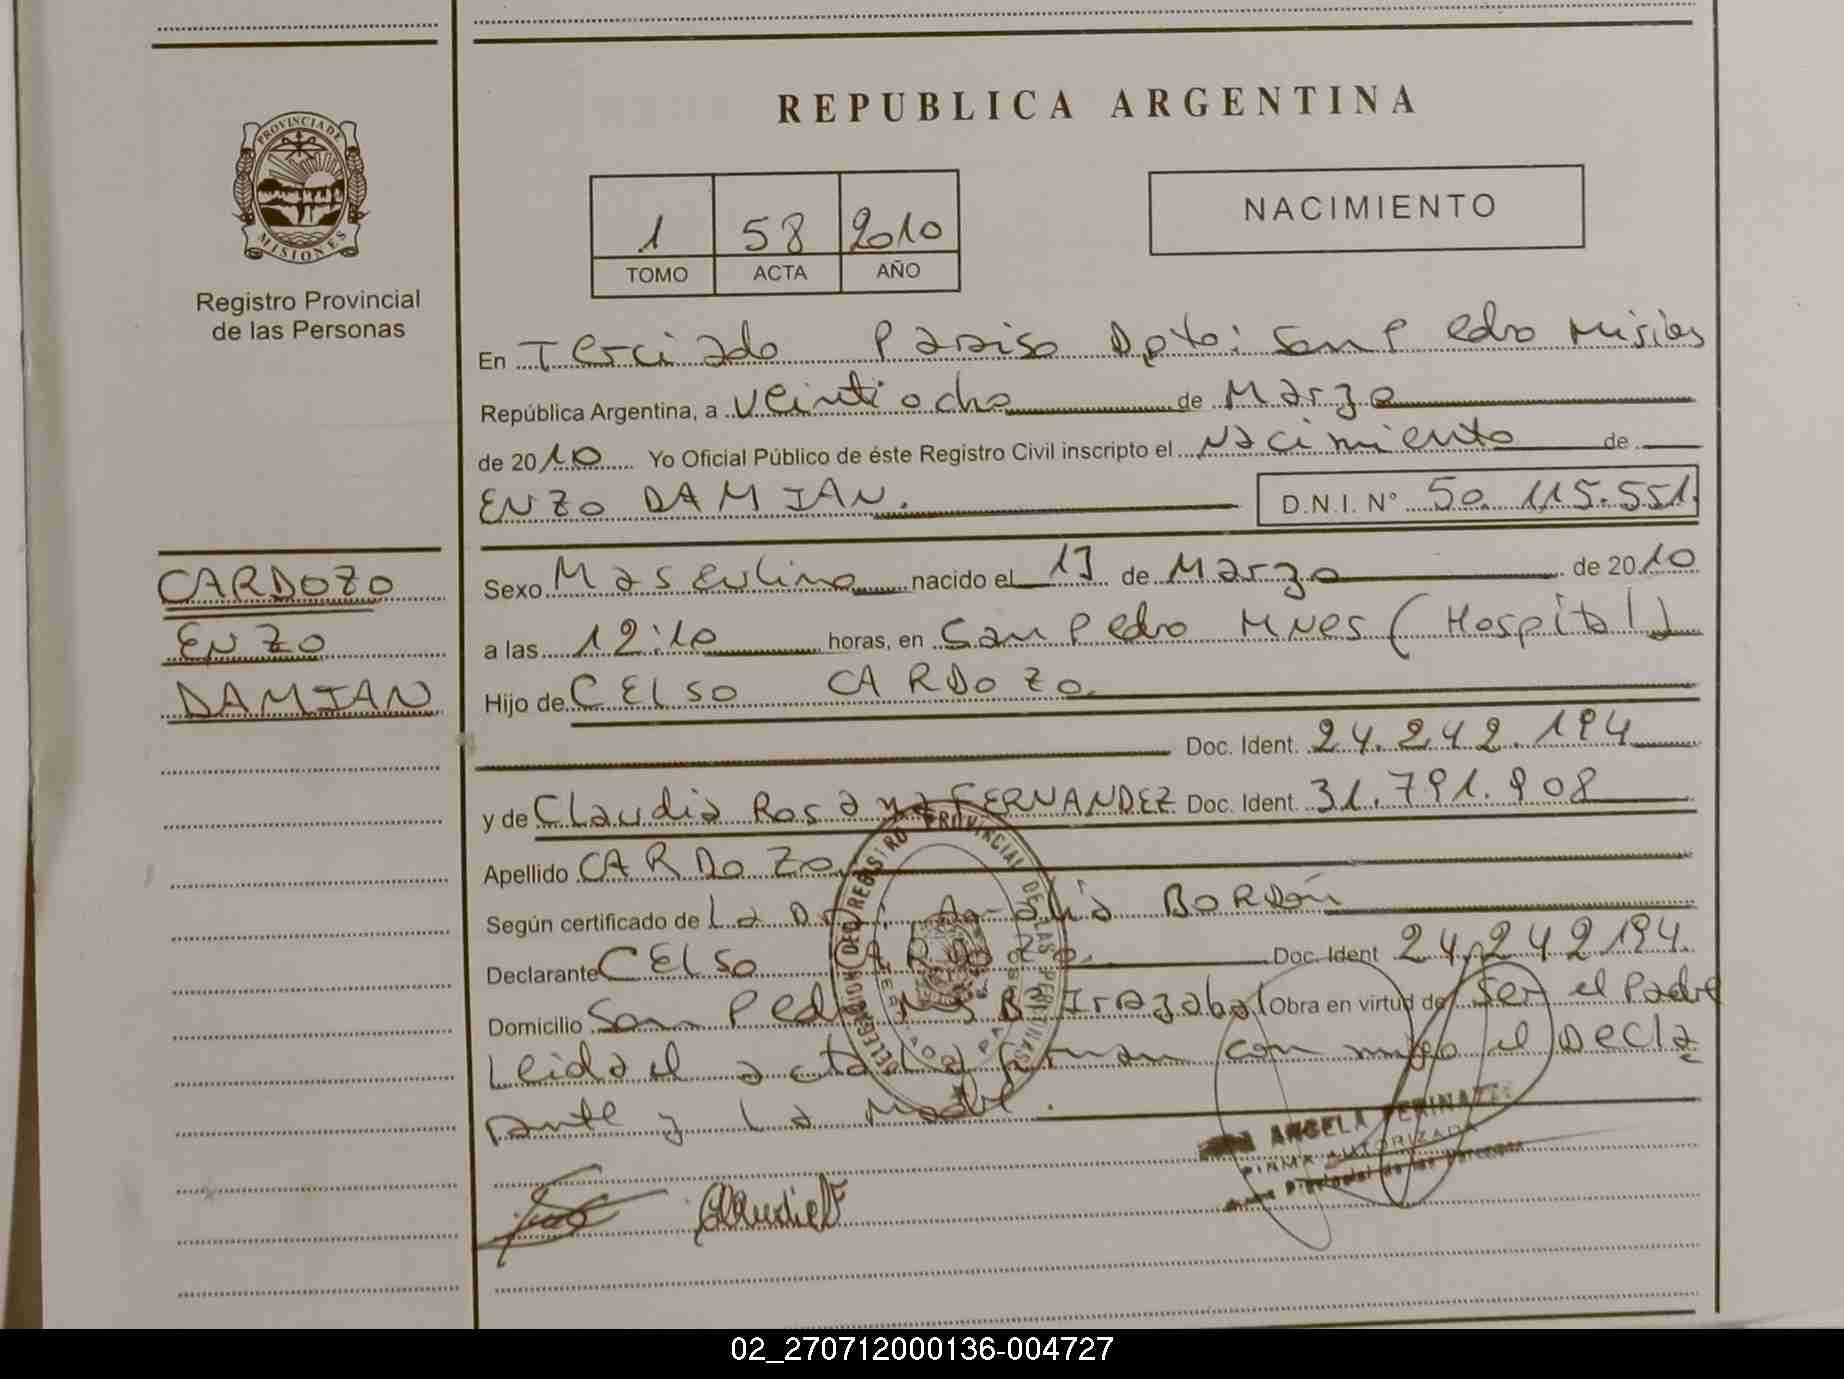 REPUBLICA ARGENTINA
PROVINCIA DE
MISIONES
Registro Provincial
de las Personas
1 58 2010
TOMO ACTA AÑO
NACIMIENTO
En Terciado Paraiso Dpto: San Pedro Misiones
República Argentina, a veintiocho de Marzo
de 2010 Yo Oficial Público de éste Registro Civil inscripto el Nacimiento de
ENZO DAMIAN. D.N.I. N° 50.115.551.
CARDOZO
ENZO
DAMIAN
Sexo Masculino nacido el 13 de Marzo de 2010
a las 12:10 horas, en San Pedro Mnes (Hospital)
Hijo de CELSO CARDOZO.
Doc. Ident. 24.242.194
y de Claudia Rosana FERNANDEZ Doc. Ident. 31.791.908
Apellido CARDOZO
Según certificado de La Dra. Amalia BORDón
Declarante CELSO CARDOZO. Doc. Ident 24.242194.
Domicilio San Pedro Mnes B° Irazabal Obra en virtud de Ser el Padre
Leida el acta la firman con migo el Decla
rante y La Madre.
DELEGACION DEL REGISTRO PROVINCIAL DE LAS PERSONAS
Claudia F
ANGELA
FIRMA AUTORIZADA
Provincial de las Personas
02_270712000136-004727